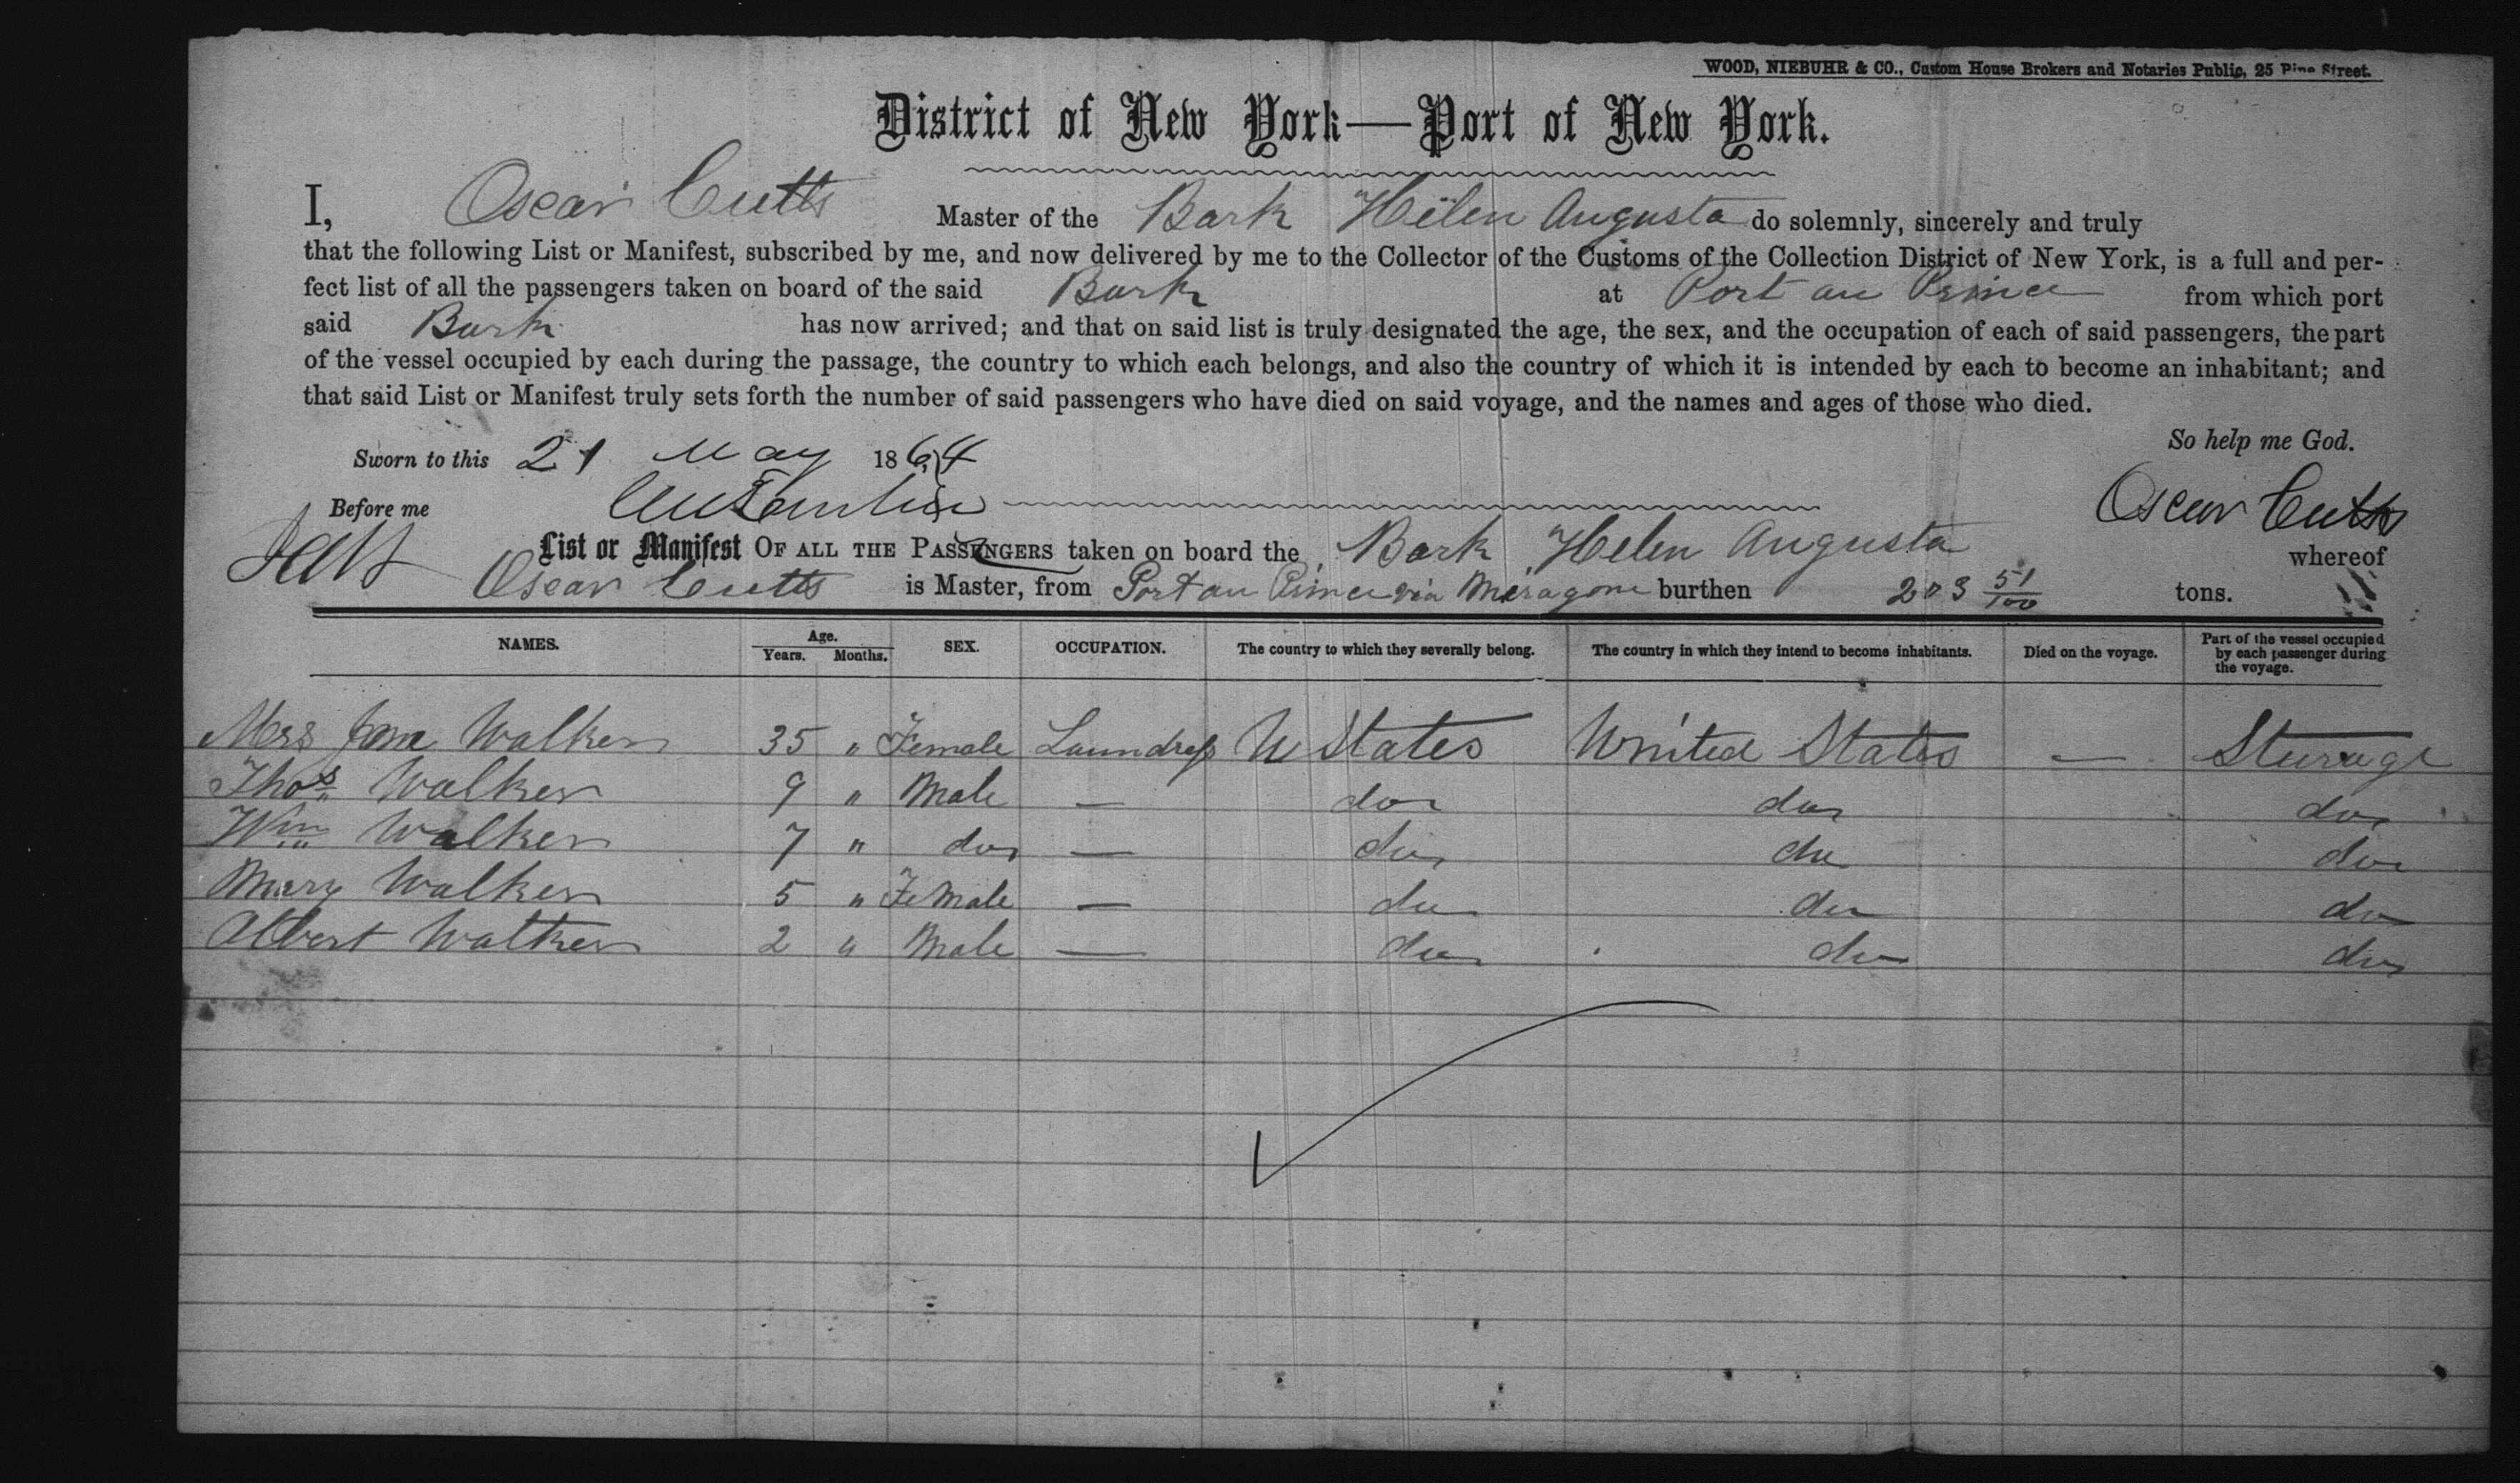 WOOD, NIEBUHR & CO., Custom House Brokers and Notaries Public, 25 Pine Street.
District of New York—Port of New York.
I, Oscar Cutts Master of the Bark Helen Augusta do solemnly, sincerely and truly
that the following List or Manifest, subscribed by me, and now delivered by me to the Collector of the Customs of the Collection District of New York, is a full and per-
fect list of all the passengers taken on board of the said Bark at Port au Prince from which port
said Bark has now arrived; and that on said list is truly designated the age, the sex, and the occupation of each of said passengers, the part
of the vessel occupied by each during the passage, the country to which each belongs, and also the country of which it is intended by each to become an inhabitant; and
that said List or Manifest truly sets forth the number of said passengers who have died on said voyage, and the names and ages of those who died.
So help me God.
Sworn to this 21 May 1864
Before me Oscar Cutts
List or Manifest OF ALL THE PASSENGERS taken on board the Bark Helen Augusta whereof
Oscar Cutts is Master, from Port au Prince via Miragone burthen 203 51/100 tons.
NAMES. Age. Years. Months. SEX. OCCUPATION. The country to which they severally belong. The country in which they intend to become inhabitants. Died on the voyage. Part of the vessel occupied by each passenger during the voyage.
Mrs Jane Walker 35 " Female Laundress U States United States — Sturage
Thos Walker 9 " Male — do do do
Wm Walker 7 " do — do do do
Mary Walker 5 " Female — do do do
Albert Walker 2 " Male — do do do